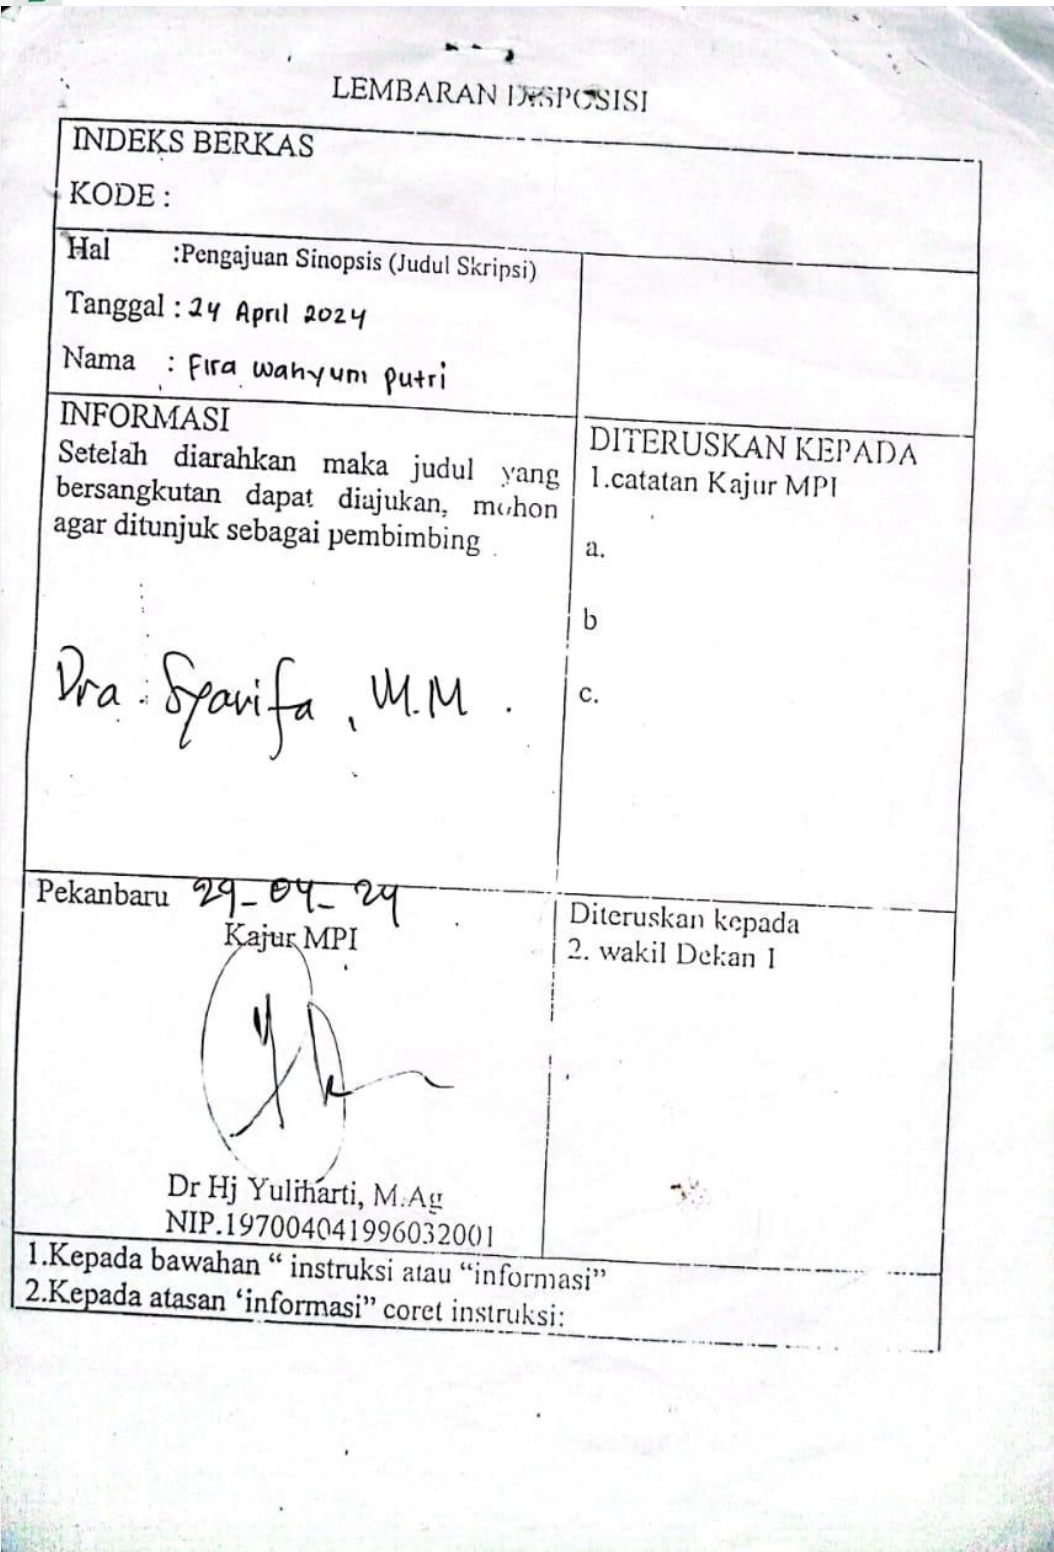 LEMBARAN DISPOSISI
INDEKS BERKAS
KODE :
Hal :Pengajuan Sinopsis (Judul Skripsi)
Tanggal : 24 April 2024
Nama : Fira wahyuni putri
INFORMASI
Setelah diarahkan maka judul yang
bersangkutan dapat diajukan, mohon
agar ditunjuk sebagai pembimbing
Dra. Syarifa, M.M.
DITERUSKAN KEPADA
1.catatan Kajur MPI
a.
b
c.
Pekanbaru 29-04-24
Kajur MPI
Dr Hj Yuliharti, M.Ag
NIP.197004041996032001
Diteruskan kepada
2. wakil Dekan I
1.Kepada bawahan “ instruksi atau “informasi”
2.Kepada atasan ‘informasi” coret instruksi: